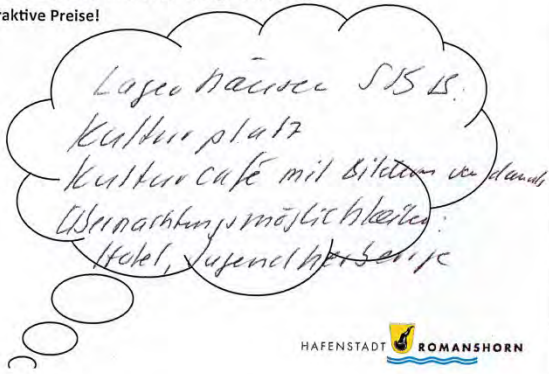 raktive Preise!
Lagerhäuser SBB:
Kulturplatz
Kulturcafé mit Bildern von damals
Übernachtungsmöglichkeiten:
Hotel, Jugendherberge
HAFENSTADT ROMANSHORN